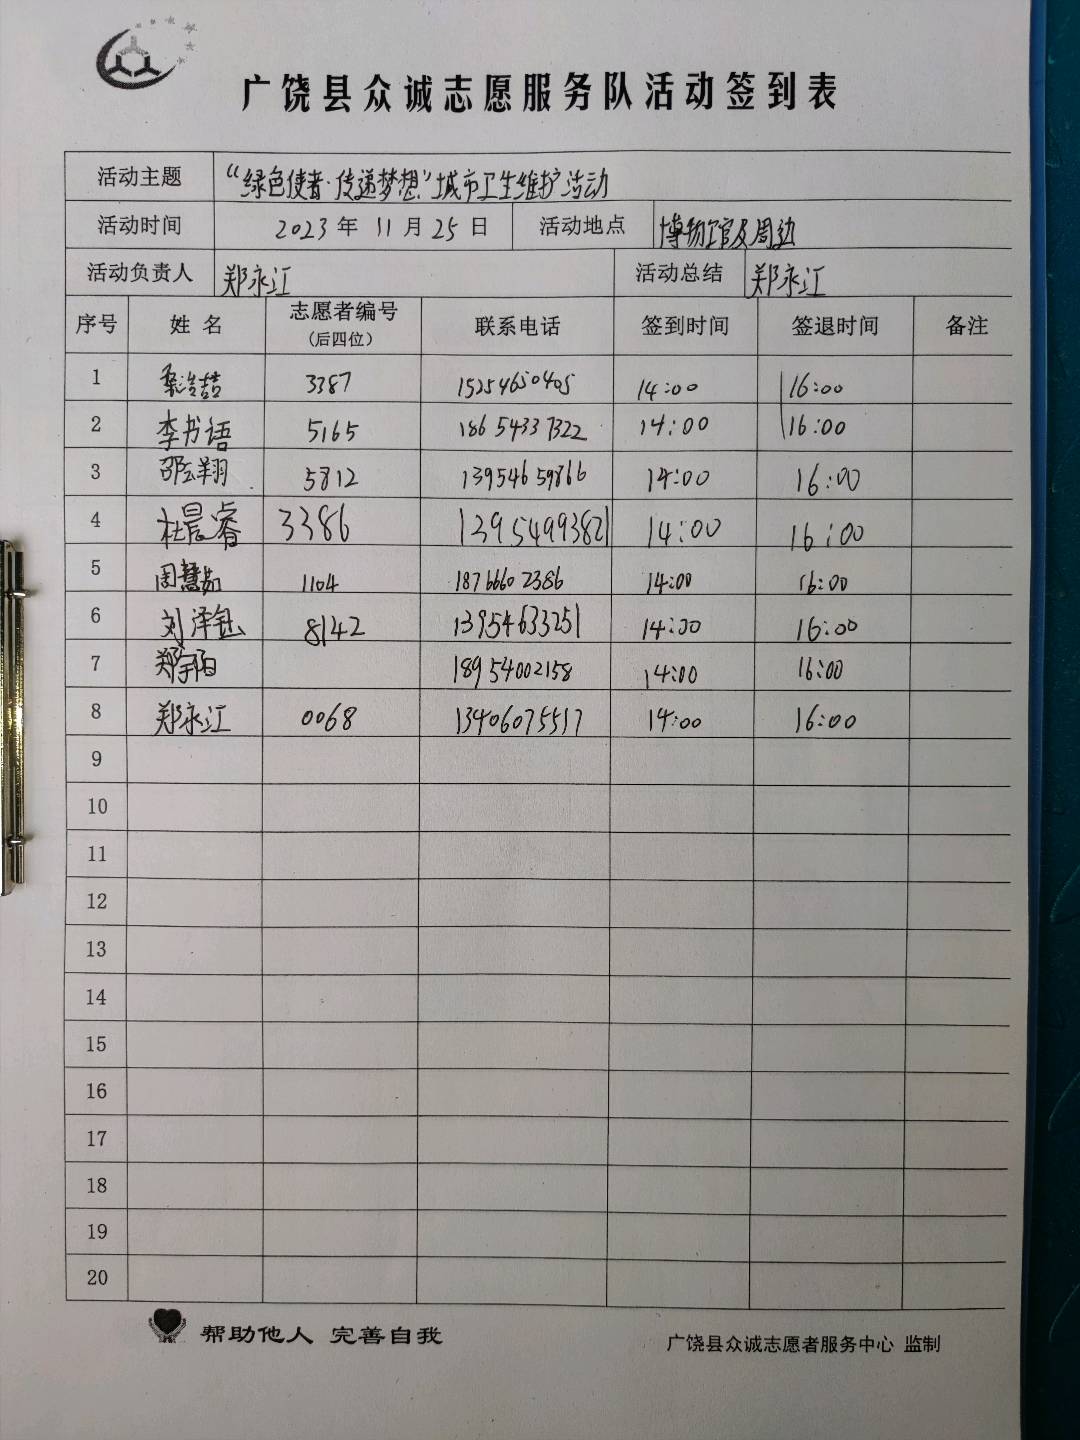 广饶县众诚志愿服务队活动签到表
活动主题 “绿色使者·传递梦想”城市卫生维护活动
活动时间 2023年11月25日 活动地点 博物馆及周边
活动负责人 郑永江 活动总结 郑永江
序号 姓名 志愿者编号（后四位） 联系电话 签到时间 签退时间 备注
1 3387 15254650405 14:00 16:00
2 李书语 5165 18654337322 14:00 16:00
3 邵云翔 5812 13954659866 14:00 16:00
4 杜晨睿 3386 13954993821 14:00 16:00
5 周慧茹 1104 18766602386 14:00 16:00
6 刘泽钰 8142 13954633251 14:00 16:00
7 郑宇阳 18954002158 14:00 16:00
8 郑永江 0068 13406075517 14:00 16:00
9
10
11
12
13
14
15
16
17
18
19
20
帮助他人 完善自我
广饶县众诚志愿者服务中心 监制